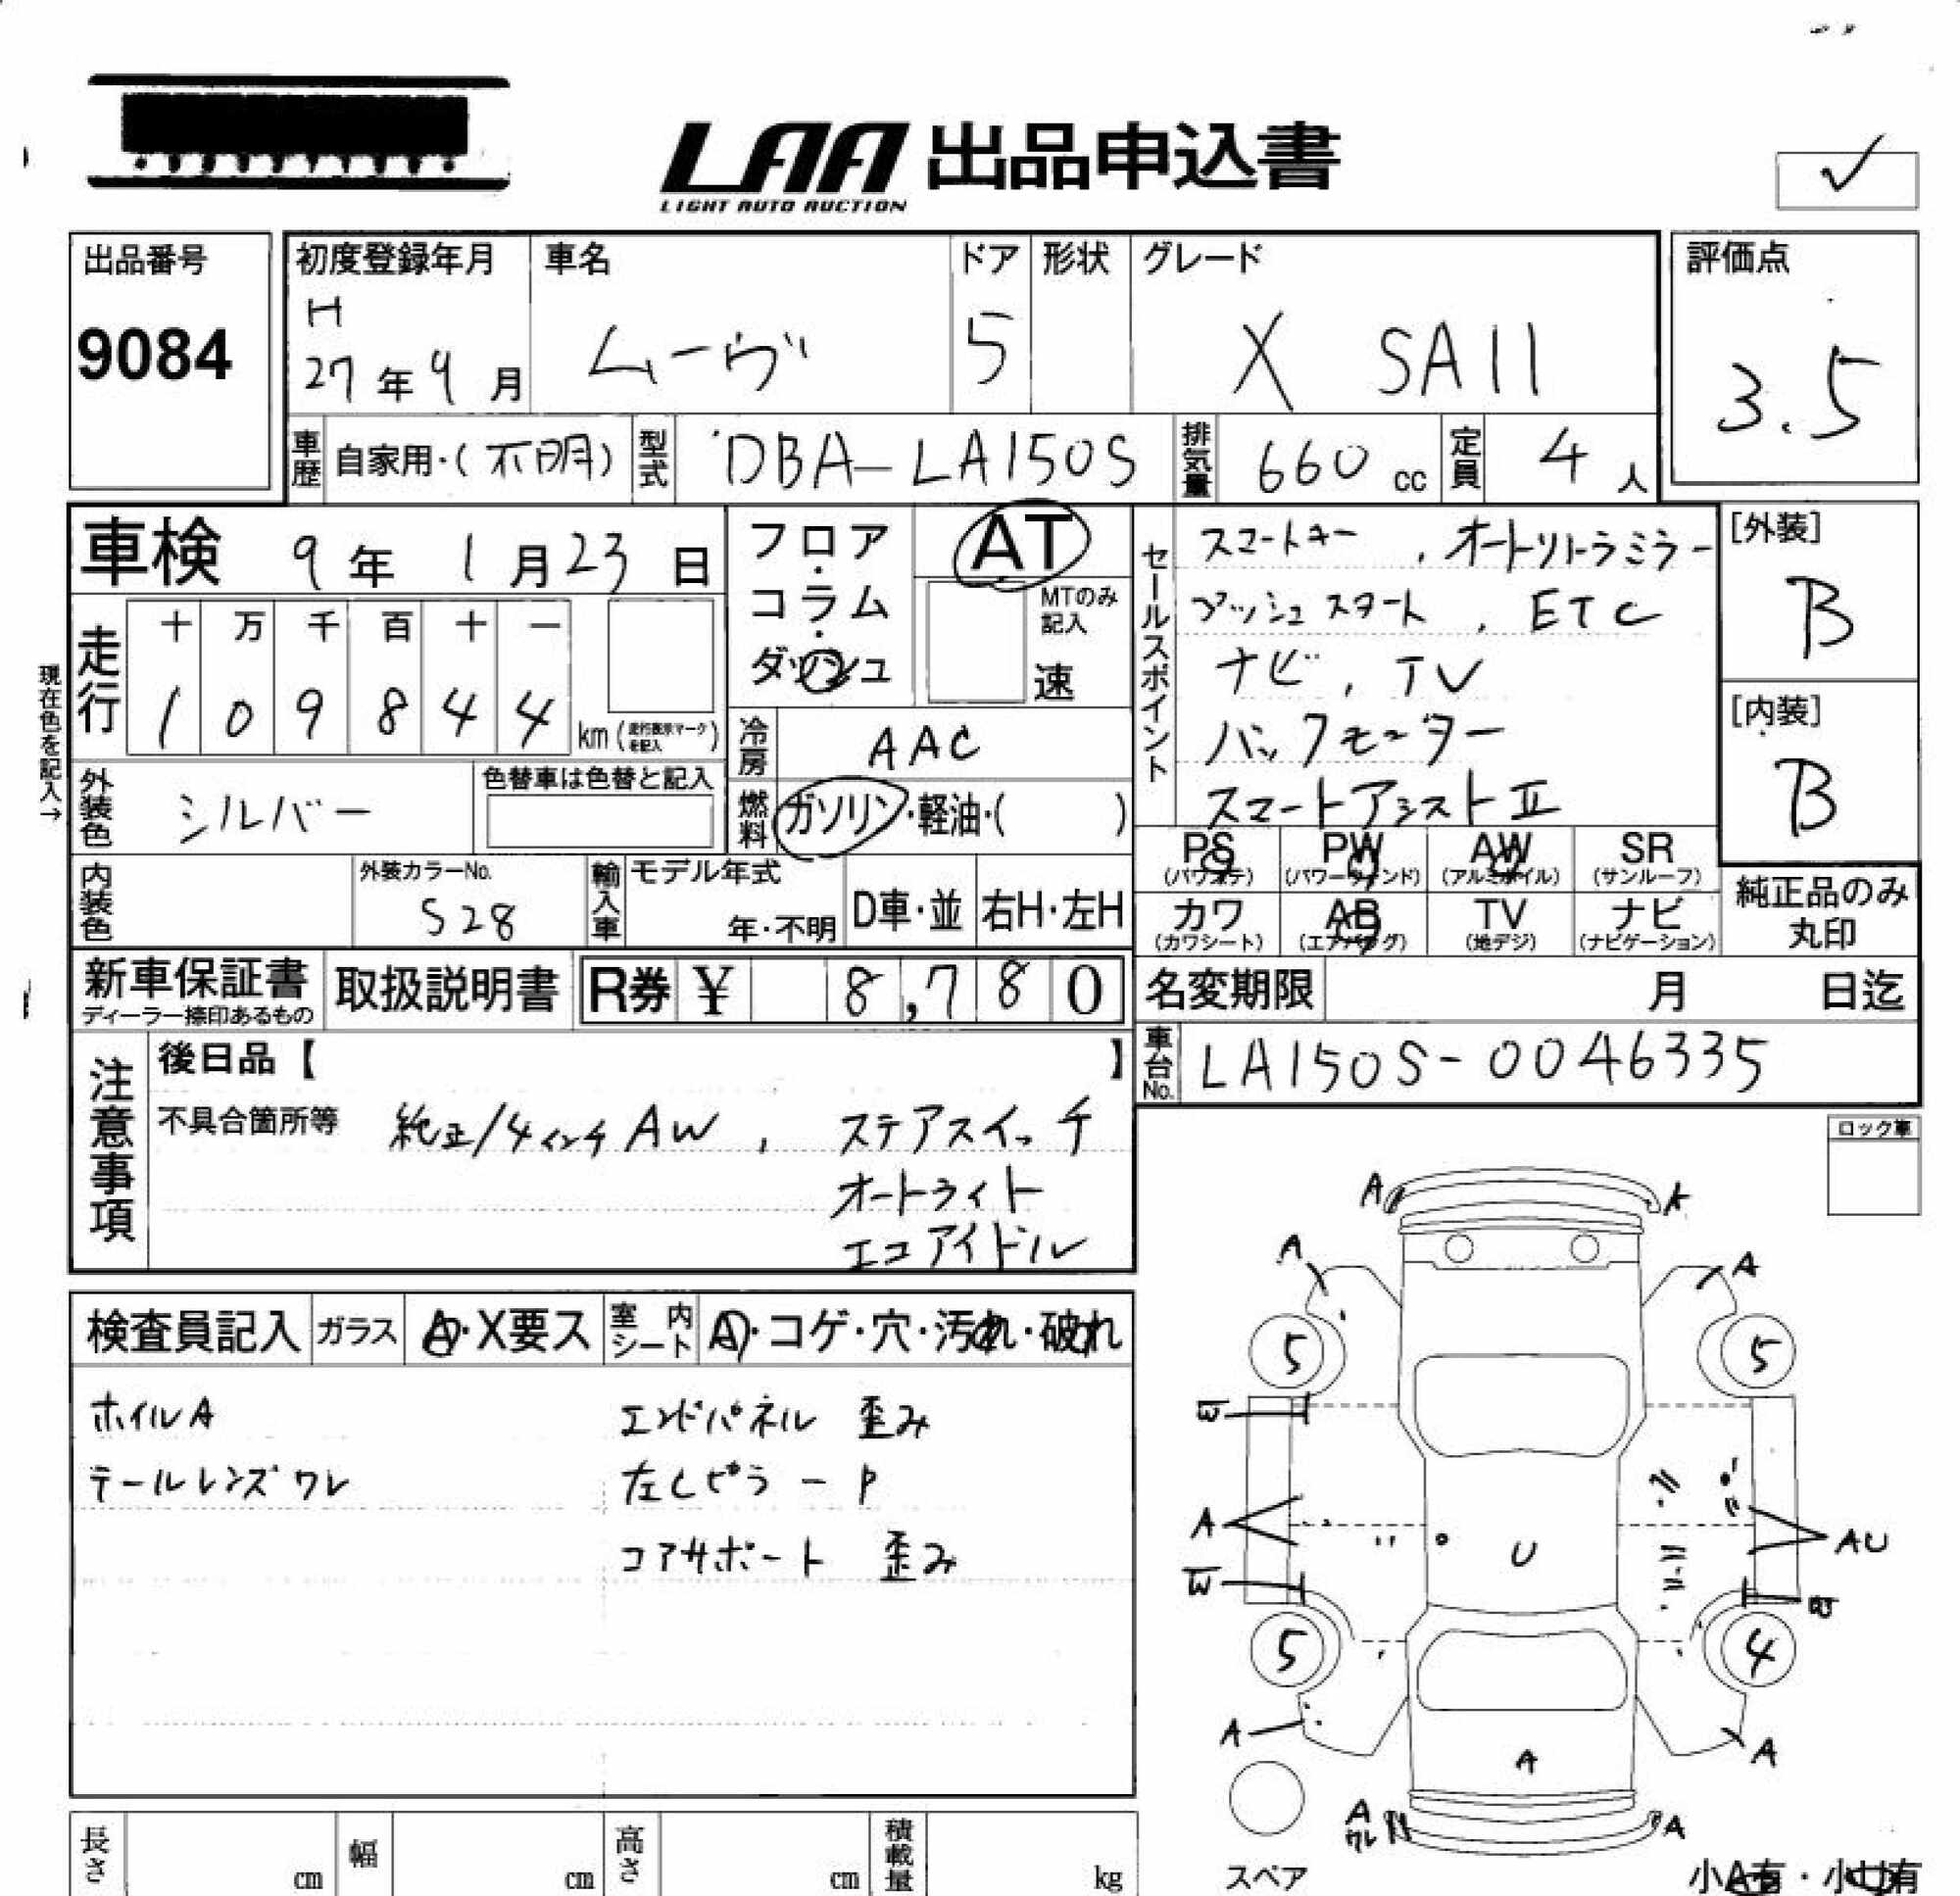 LAA 出品申込書
LIGHT AUTO AUCTION
✓
出品番号
9084
初度登録年月
H
27年9月
車名
ムーヴ
ドア
5
形状
グレード
X SAII
評価点
3.5
車歴 自家用・(不明)
型式 DBA-LA150S
排気量 660 cc
定員 4 人
車検 9年1月23日
走行
十 万 千 百 十 一
1 0 9 8 4 4 km
現在色を記入→
フロア・コラム・ダッシュ
AT
MTのみ記入
速
冷房 AAC
燃料 ガソリン・軽油・( )
外装色 シルバー
色替車は色替と記入
内装色
外装カラーNo.
S28
輸入車
モデル年式
年・不明
D車・並
右H・左H
セールスポイント
スマートキー、オートリトラミラー
プッシュスタート、ETC
ナビ、TV
バックモーター
スマートアシストII
[外装]
B
[内装]
B
PS (パワステ)
PW (パワーウィンド)
AW (アルミホイル)
SR (サンルーフ)
カワ (カワシート)
AB (エアバッグ)
TV (地デジ)
ナビ (ナビゲーション)
純正品のみ丸印
新車保証書
ディーラー捺印あるもの
取扱説明書
R券 ¥ 8,780
名変期限 月 日迄
車台No. LA150S-0046335
注意事項
後日品【 】
不具合箇所等
純正14インチAW、ステアスイッチ
オートライト
エコアイドル
ロック車
検査員記入
ガラス A・X要ス
室内シート A・コゲ・穴・汚れ・破れ
ホイルA
テールレンズワレ
エンドパネル 歪み
左CピラーP
コアサポート 歪み
A A
A A
5 5
W
A U AU
W
5 4
A A A
A ワレ A
スペア
小A有・小U有
長さ cm
幅 cm
高さ cm
積載量 kg